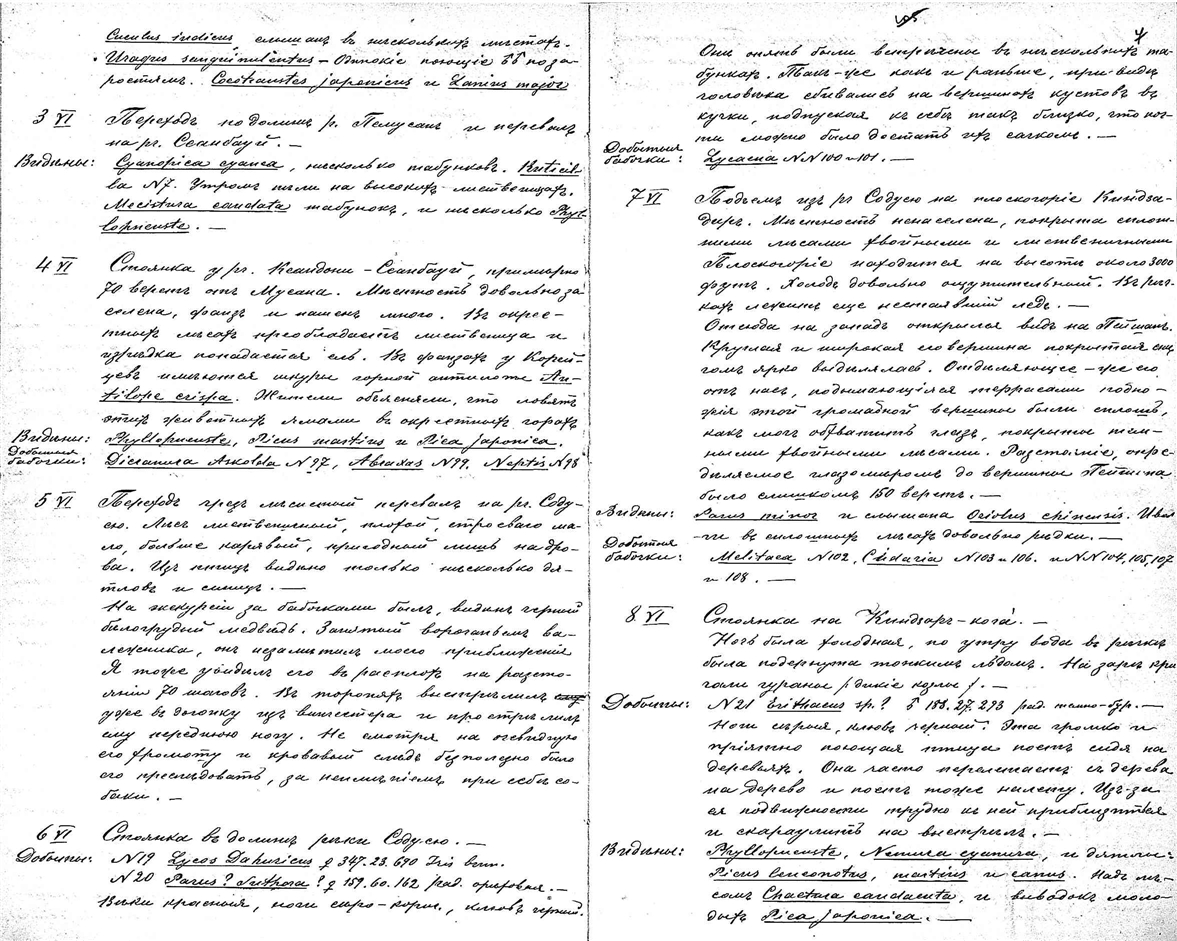 Cuculus indicus слышанъ въ нѣсколькихъ мѣстахъ.
Uragus sanguinulentus – Одинокіе поющіе ♂♂ по за-
ростямъ. Cocothraustes japonicus и Lanius major
3 VI Переходъ по долинѣ р. и перевалъ
на рч. Сеанбауй. —
Видѣны: Cyanopica cyanea, нѣсколько табунковъ. Ruticil-
la N7. Утромъ пѣли на высокихъ лиственицахъ.
Mecistura caudata табунокъ, и нѣсколько Phyl-
lopneuste. —
4 VI Стоянка у рч. Ксандони-Сеанбауй, примѣрно
70 верстъ отъ Мусана. Мѣстность довольно за
селена, фанзъ и пашенъ много. Въ окрес-
тныхъ лѣсахъ преобладаетъ лиственица и
изрѣдка попадается ель. Въ фанзахъ у Корей-
цевъ имѣются шкуры горной антилопы An-
tilope crispa. Жители объясняли, что ловятъ
этихъ животныхъ ямами въ окрестныхъ горахъ
Видѣны: Phyllopneuste, Picus martius и Pica japonica.
Добытыя бабочки: Dicranura Askolda N97, Abraxas N99, Neptis N98
5 VI Переходъ чрезъ лѣсистый перевалъ на рч. Соду-
сю. Лѣсъ лиственичный, плохой, строеваго ма-
ло, больше карявый, пригодный лишь на дро-
ва. Изъ птицъ видѣно только нѣсколько дя-
тловъ и синицъ. —
На экскурсіи за бабочками былъ видѣнъ черный
бѣлогрудый медвѣдь. Занятый ворочаньемъ ва-
лежника, онъ незамѣтилъ моего приближенія
Я тоже увидѣлъ его въ расплохъ на разсто-
яніи 70 шаговъ. Въ торопяхъ выстрѣлилъ
уже въ догонку изъ винчестера и прострѣлилъ
ему переднюю ногу. Не смотря на очевидную
его хромоту и кровавый слѣдъ безполезно было
его преслѣдовать, за неимѣніемъ при себѣ со-
баки. —
6 VI Стоянка въ долинѣ рѣки Содусю. —
Добыты: N19 Lycos Dahuricus ♀ 347.23.690 Iris brun.
N20 Parus? Suthora? ♀ 159.60.162 рад. орѣховая. —
Вѣки красныя, ноги серо-корич., клювъ черный.
Они опять были встрѣчены въ нѣсколькихъ та-
бункахъ. Такъ-же какъ и раньше, при видѣ
головѣка сбивались на вершинахъ кустовъ въ
кучки, подпуская къ себѣ такъ близко, что поч-
ти можно было достать ихъ сачкомъ. —
Добытыя бабочки: Lycaena NN 100 и 101. —
7 VI Подъемъ изъ рч Содусю на плоскогоріе Киндза-
дыръ. Мѣстность ненаселена, покрыта сплош-
ными лѣсами хвойными и лиственичными
Плоскогоріе находится на высотѣ около 3000
футъ. Холодъ довольно ощутительный. Въ рѣч-
кахъ лежитъ еще нестаявшій ледъ. —
Отсюда на западъ открылся видъ на Пейшанъ.
Круглая и широкая его вершина покрытая снѣ
гомъ ярко выдѣлялась. Отдѣляющее-же его
отъ насъ, подымающіяся террасами подно-
жія этой громадной вершины были сплошь,
какъ могъ обхватить глазъ, покрыты тем-
ными хвойными лѣсами. Разстояніе, опре-
дѣляемое глазомѣромъ до вершины Пейшана
было слишкомъ 150 верстъ. —
Видѣны: Parus minor и слышана Oriolus chinensis. Ивол
-ги въ сплошныхъ лѣсахъ довольно рѣдки. —
Добытыя бабочки: Melitaea N102, Cidaria N103 и 106. и NN 104, 105, 107
и 108. —
8 VI Стоянка на Киндзаръ-кога. —
Ночь была холодная, по утру вода въ рѣчкѣ
была подернута тонкимъ льдомъ. На зарѣ кри
чали гураны (дикіе козлы). —
Добыты: N21 Erithacus sp? ♂ 188.27.293 рад. темно-бур. —
Ноги сѣрыя, клювъ черный. Эта громко и
пріятно поющая птица поетъ сидя на
деревьяхъ. Она часто перелетаетъ съ дерева
на дерево и поетъ тоже налету. Изъ-за
ея подвижности трудно къ ней приблизиться
и скараулить на выстрѣлъ. —
Видѣны: Phyllopneuste, Nemura cyanura, и дятлы:
Picus leuconotus, martius и canus. Надъ лѣ-
сомъ Chaetura caudacuta, и выводокъ моло-
дыхъ Pica japonica. —